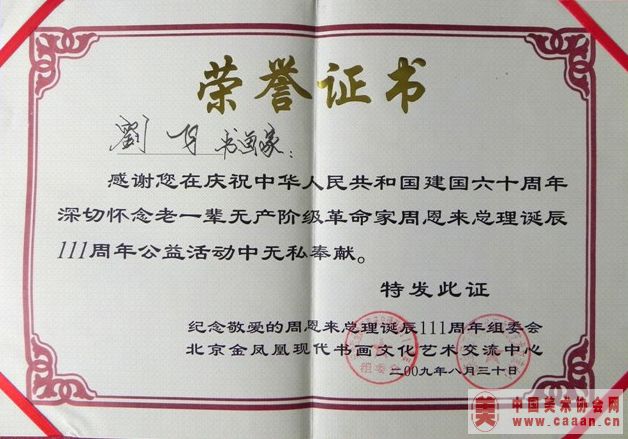 荣誉证书
劉 书画家:
感谢您在庆祝中华人民共和国建国六十周年
深切怀念老一辈无产阶级革命家周恩来总理诞辰
111周年公益活动中无私奉献。
特发此证
纪念敬爱的周恩来总理诞辰111周年组委会
北京金凤凰现代书画文化艺术交流中心
二00九年八月三十日
组委会
美
中国美术协会网
www.caaan.cn